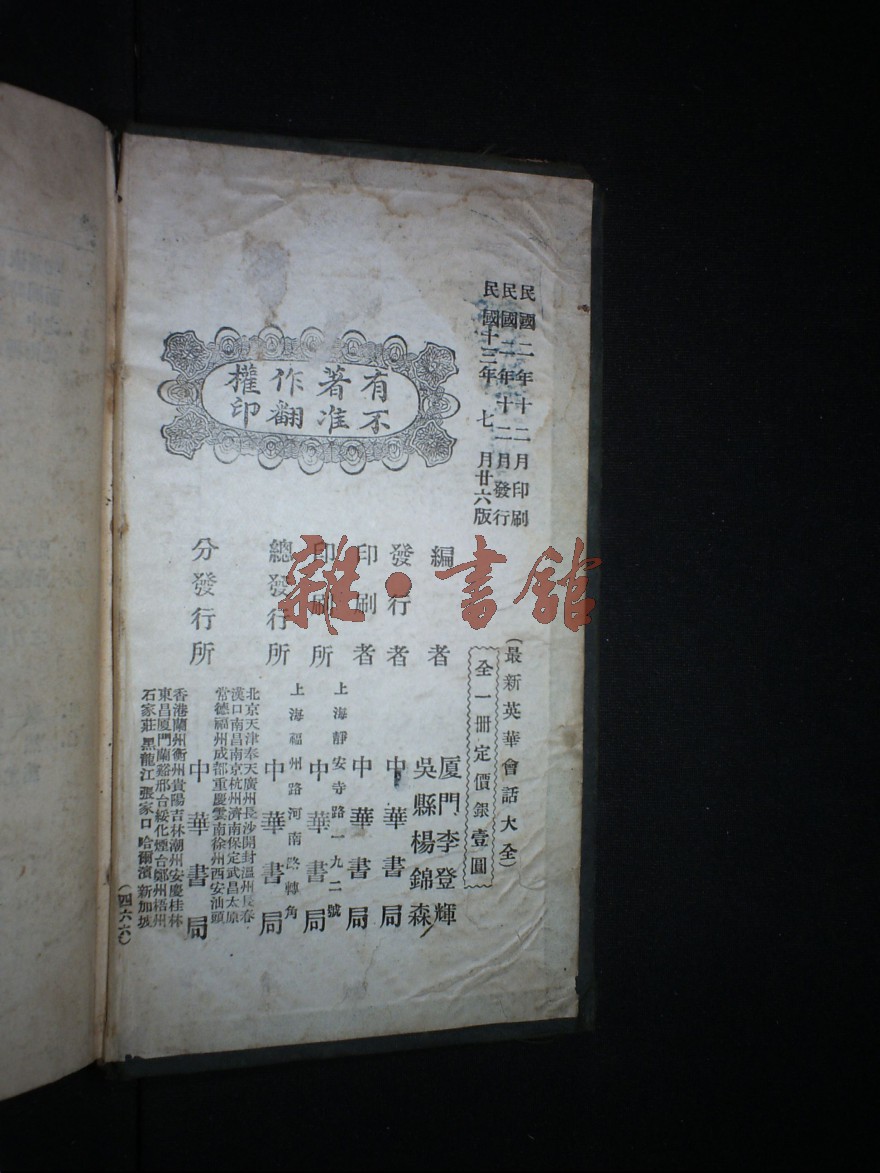 民國二年十二月印刷
民國二年十二月發行
民國十三年七月廿六版
有著作權
不准翻印
（最新英華會話大全）
全一冊定價銀壹圓
編者
厦門李登輝
吳縣楊錦森
發行者
中華書局
印刷者
中華書局
印刷所
上海靜安寺路一九二號
中華書局
總發行所
上海福州路河南路轉角
中華書局
分發行所
北京天津奉天廣州長沙開封溫州長春
漢口南昌南京杭州濟南保定武昌太原
常德福州成都重慶雲南徐州西安汕頭
中華書局
香港蘭州衡州貴陽吉林潮州安慶桂林
東昌厦門蘭谿邢台綏化煙台鄭州梧州
石家莊黑龍江張家口哈爾濱新加坡
（四六六）
雜·書館